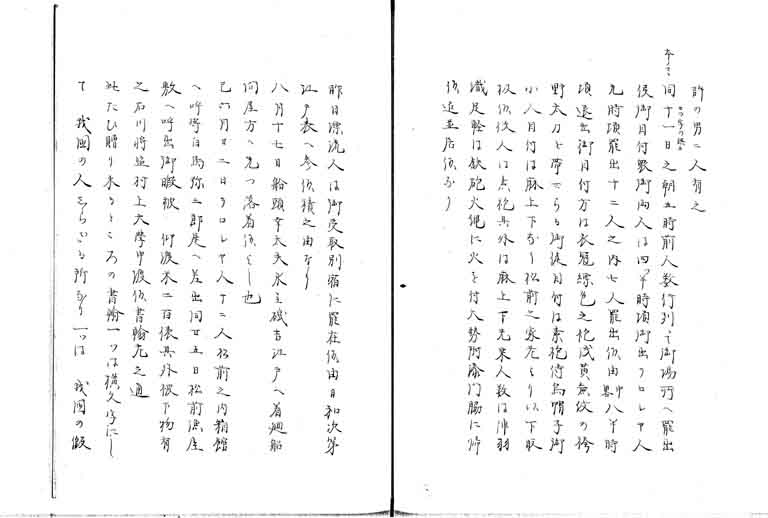 許の男二人有之
同十一日之朝五時前人数行列ニ而御場所へ罷出
候御目付衆御両人は四ツ半時頃御出ヲロシヤ人
九時頃罷出十二人之内七人罷出候由 八半時
頃退出御目付方は衣冠縹色之袍浅黄無紋の袴
野太刀を帯せらる御徒目付は素袍侍烏帽子御
小人目付は麻上下なり松前之家老より以下取
扱候役人は素袍其外は麻上下先手人数は陣羽
織足軽は鉄砲火縄に火を付大勢附添門脇に
候迄並居候なり
昨日漂流人は御受取別宿に罷在候由日和次第
江戸表へ参候積之由なり
八月十七日船頭幸太夫水主磯吉江戸へ着廻船
問屋方へ先つ落着候よし也
己六月廿一日ヲロシヤ人十二人松前之内箱館
へ呼寄白馬弥三郎屋へ差出同廿五日松前漁屋
敷へ呼出御暇被 仰渡米二百俵其外被下物有
之石川将監村上大学申渡候書翰左之通
此たひ贈り来るところの書翰一ツは横文字にし
て 我国の人しらさる所なり一ツは 我国の仮